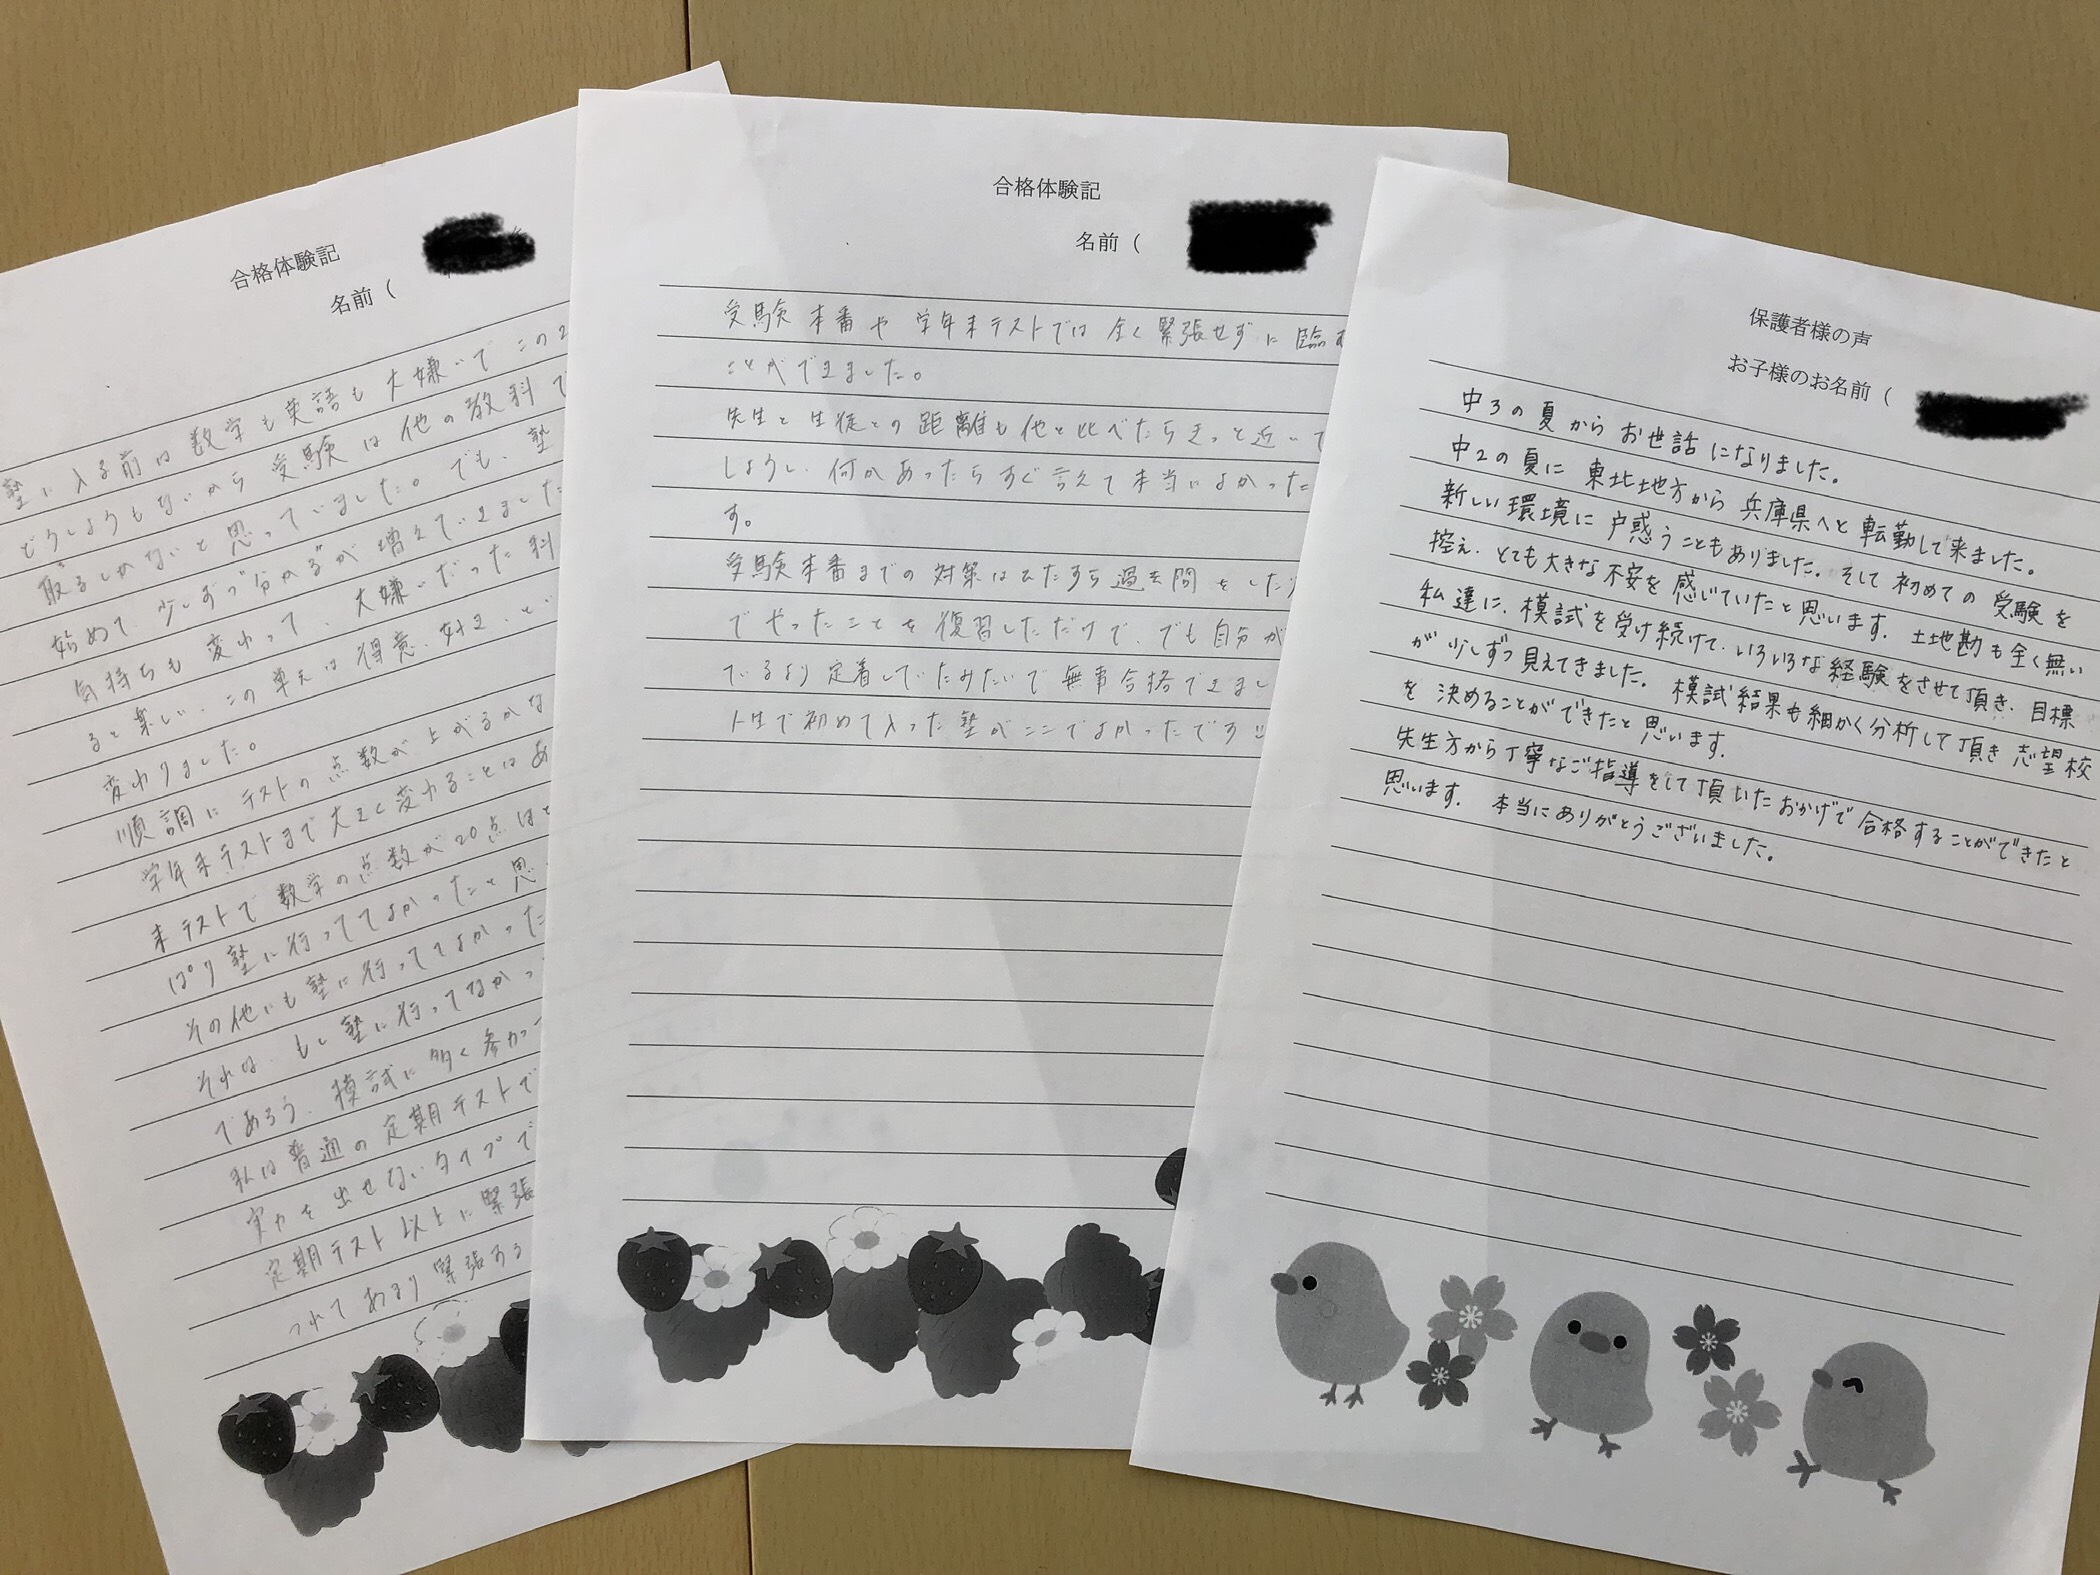 合格体験記
名前（
塾に入る前は数学も英語も大嫌いでこの2
どうしようもないから受験は他の教科で
取るしかないと思っていました。でも、塾
始めて少しずつ"分かる"が増えていきました
気持ちも変わって、大嫌いだった科
ると楽しい、この単元は得意、好き、と
変わりました。
順調にテストの点数が上がるかな
学年末テストまで大きく変わることはあ
末テストで数学の点数が20点ほど
ぱり塾に行っててよかったと思
その他にも塾に行っててよかった
それは、もし塾に行ってなかっ
であろう、模試に多く参加
私は普通の定期テストで
実力を出せないタイプで
定期テスト以上に緊張
つれてあまり緊張する
合格体験記
名前（
受験本番や学年末テストでは全く緊張せずに臨む
ことができました。
先生と生徒との距離も他と比べたらきっと近いで
しょうし、何かあったらすぐ言えて本当によかった
す。
受験本番までの対策はひたすら過去問をした
でやったことを復習しただけで、でも自分が
ているより定着していたみたいで無事合格できまし
人生で初めて入った塾がここでよかったです!!
保護者様の声
お子様のお名前（
中3の夏からお世話になりました。
中2の夏に東北地方から兵庫県へと転勤して来ました。
新しい環境に戸惑うこともありました。そして初めての受験を
控え、とても大きな不安を感じていたと思います。土地勘も全く無い
私達に、模試を受け続けて、いろいろな経験をさせて頂き、目標
が少しずつ見えてきました。模試結果も細かく分析して頂き志望校
を決めることができたと思います。
先生方から丁寧なご指導をして頂いたおかげで合格することができたと
思います。本当にありがとうございました。